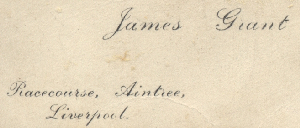 James Grant
Racecourse, Aintree,
Liverpool.